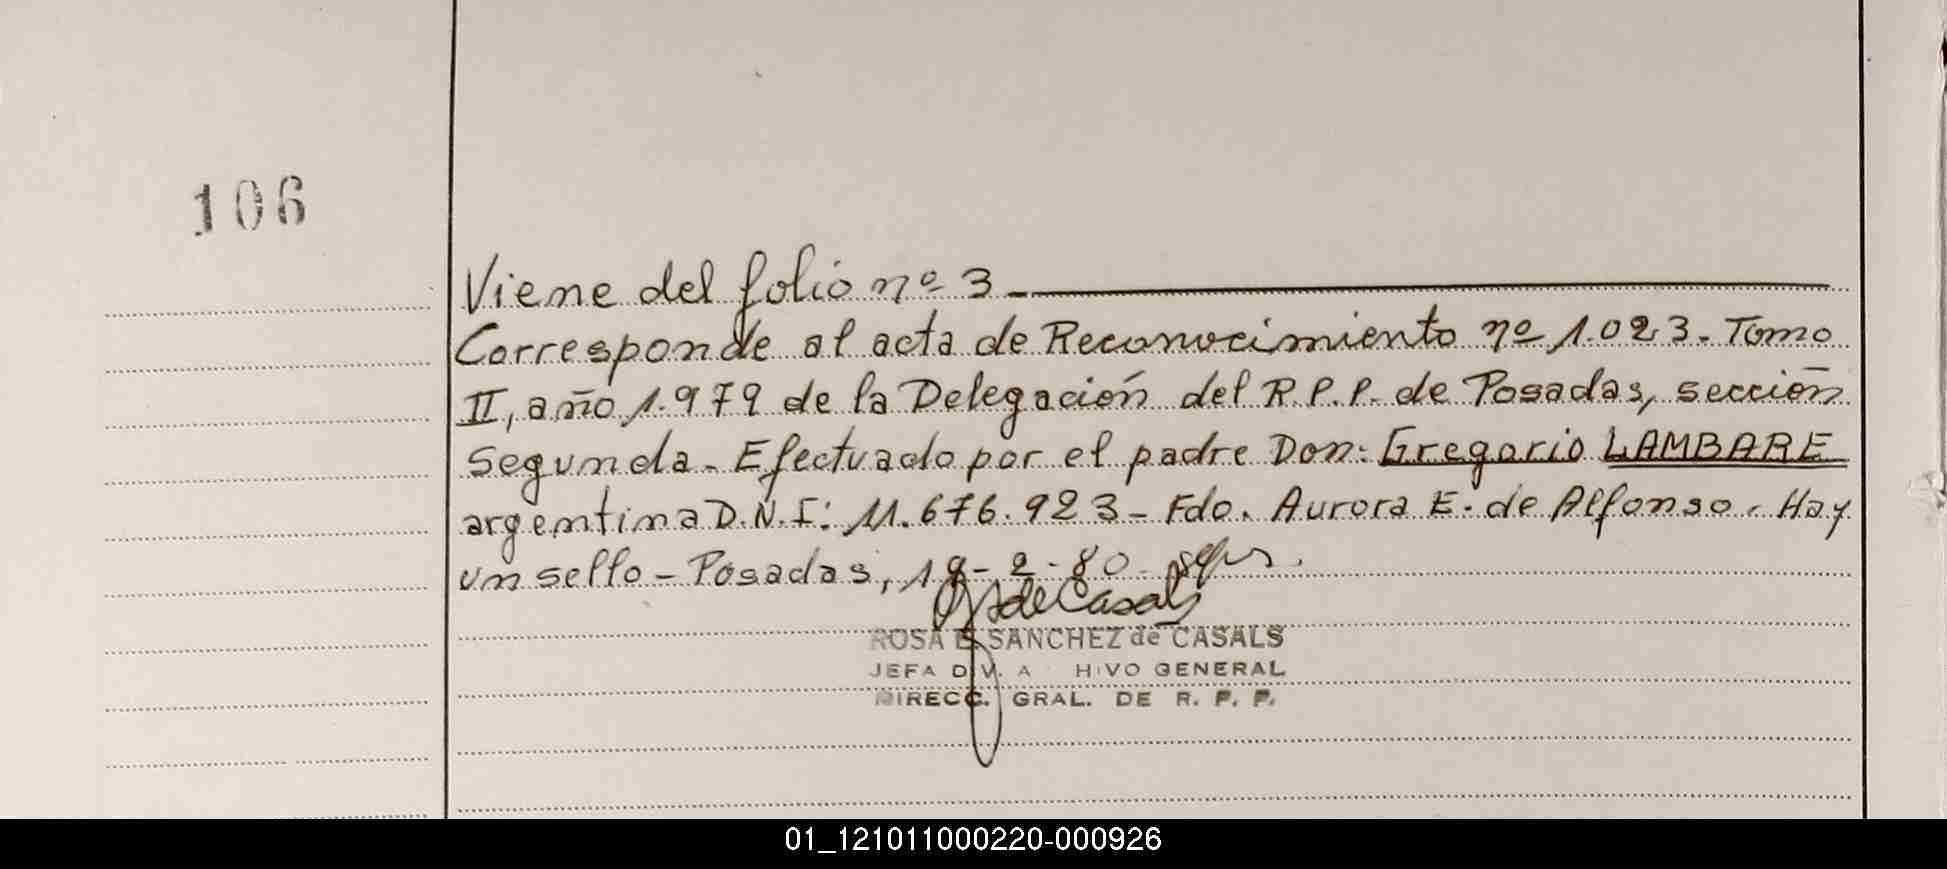 106
Viene del folio nº 3 -
Corresponde al acta de Reconocimiento nº 1.023. Tomo
II, año 1.979 de la Delegación del R.P.P. de Posadas, sección
Segunda. Efectuado por el padre Don: Gregorio LAMBARE
argentina D.N.I: 11.676.923 - Fdo. Aurora E. de Alfonso. Hay
un sello - Posadas, 18-2-80.
de Casals
ROSA E. SANCHEZ de CASALS
JEFA DIV. A HIVO GENERAL
DIRECC. GRAL. DE R. P. P.
01_121011000220-000926